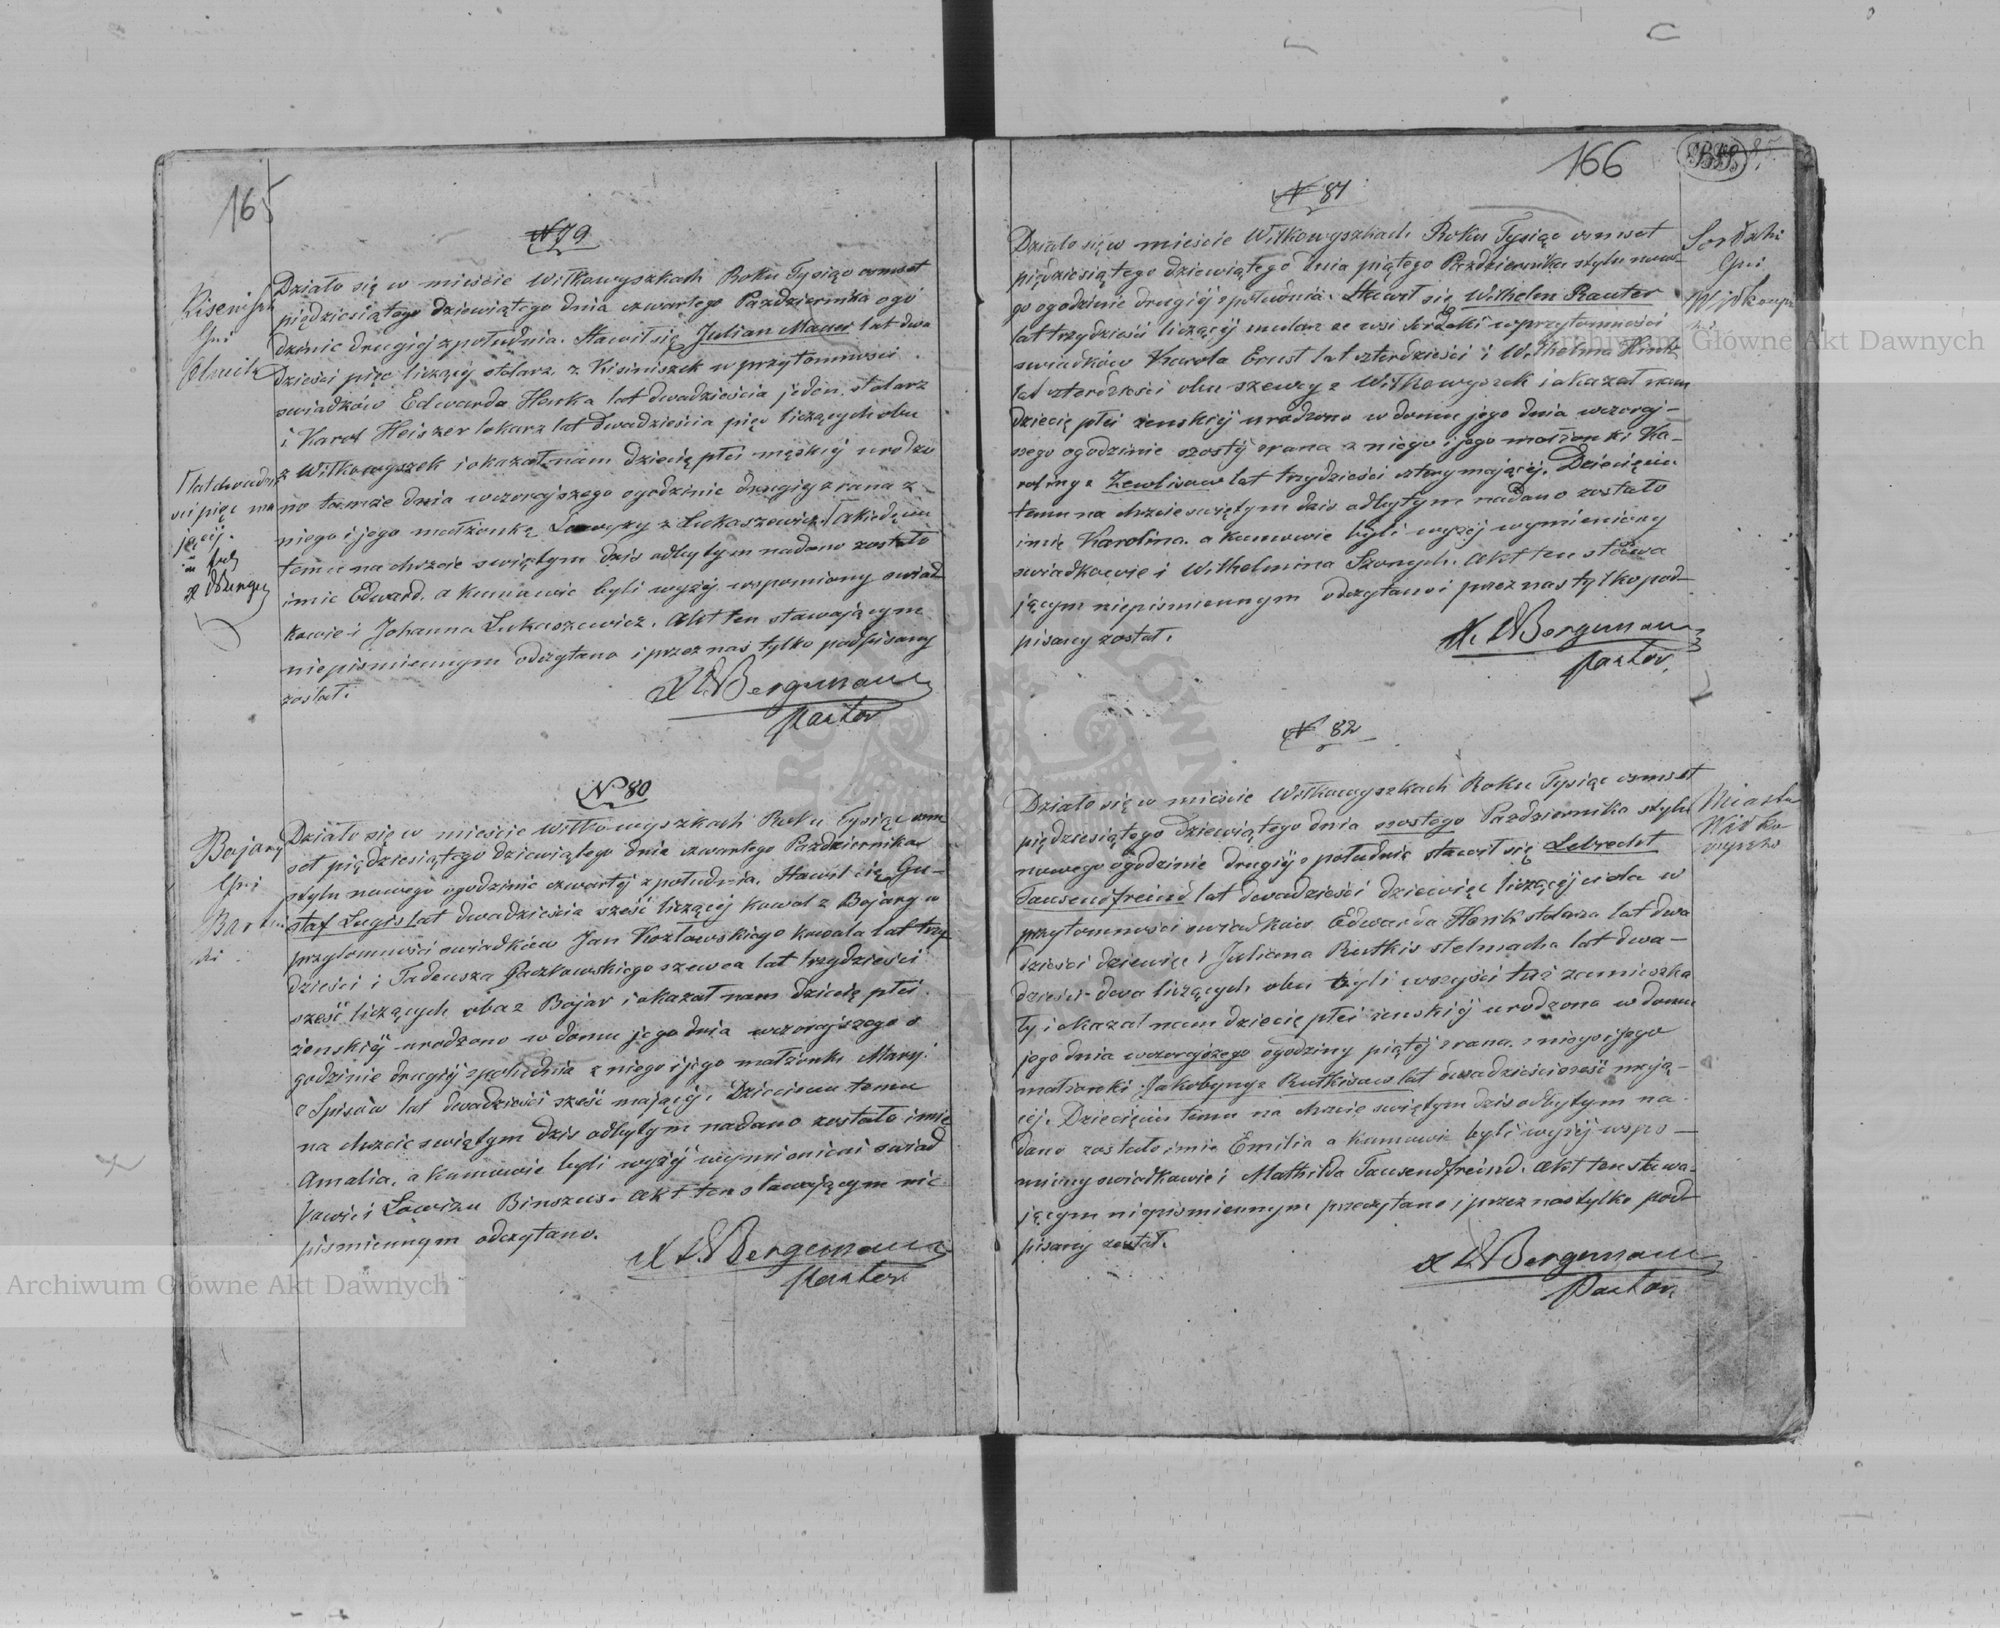 165
N 79
Działo się w mieście Wiłkowyszkach Roku Tysiąc osmset
pięćdziesiątego dziewiątego dnia czwartego Października ogo
dzinie drugiej z południa. Stawił się Julian Mauer lat dwa
dzieści pięć liczący stolarz z Kisiniszek w przytomności
swiadków Edwarda Henka lat dwadzieścia jeden stolarz
i Karol Heiszer lekarz lat dwadzieścia pięć liczących obu
z Wiłkowyszek i okazał nam dziecię płci męskiéj urodzo
no tamże dnia wczorajszego ogodzinie drugiej z rana z
niego i jego małżonkę z Łukaszewicz
temu na chrzcie swiętym dziś odbytym nadano zostało
imie Edward. a kumowie byli wyżej wspomiony swiad
kowie i Johanna Łukaszewicz. Akt ten stawającym
niepismiennym odczytano i przez nas tylko podpisany
został.
Bergemann
Pastor
Gmi
lat dwadzie
sci pięć ma
jącéj.
N 80
Działo się w mieście Wiłkowyszkach Roku Tysiąc osm
set pięćdziesiątego dziewiątego dnia czwartego Października
stylu nowego ogodzinie czwartéj z południa. Stawił się Gu-
staf Lugis lat dwadzieścia sześć liczącéj kowal z Bojary w
przytomności swiadków Jan Kozłowskiego kowala lat trzy
dzieści i Tadeusza Paczkowskiego szewca lat trzydzieści
sześć liczących oba z Bojar i okazał nam dziecię płci
żenskiéj urodzono w domu jego dnia wczorajszego o
godzinie drugiéj z południa z niego i jego małżonki Maryi
z Spisów lat dwadzieści sześć mającéj. Dziecięciu temu
na chrzcie swiętym dziś odbytym nadano zostało imię
Amalia, a kumowie byli wyżéj wymienieni swiad
kowie i Lowiza Binszus. Akt ten stawającym nie
pismiennym odczytano.
Bergemann
Pastor
Bojary
Gmi
166
N 81
Działo się w mieście Wiłkowyszkach Roku Tysiąc osmset
pięćdziesiątego dziewiątego dnia piątego Października stylu nowe-
go ogodzinie drugiéj z południa. Stawił się Wilhelm Rauter
lat trzydzieści liczącéj mularz ze wsi Serdoki w przytomności
swiadków Karola Ernst lat czterdzieści i Wilhelma Hink
lat czterdzieści obu szewcy z Wiłkowyszek i okazał nam
dziecię płci żenskiéj urodzono w domu jego dnia wczoraj-
szego ogodzinie szostéj z rana z niego i jego małżonki Ka-
roliny z lat trzydzieści cztery mającéj. Dziecięciu
temu na chrzcie swiętym dziś odbytym nadano zostało
imię Karolina. a kumowie byli wyżéj wymieniony
swiadkowie i Wilhelmina Szonych. Akt ten stawa
jącym niepismiennym odczytano i przez nas tylko pod-
pisany został.
Bergemann
Pastor.
Gmi
N 82
Działo się w mieście Wiłkowyszkach Roku Tysiąc osmset
pięćdziesiątego dziewiątego dnia szostego Października stylu
nowego ogodzinie drugiéj z południa stawił się Lebrecht
Tausendfreind lat dwadzieści dziewięć liczącéj w
przytomności swiadków Edwarda Henk stolarza lat dwa
dzieści dziewięć i Juliana Rutkis stelmacha lat dwa-
dzieści dwa liczących obu byli wszyści tuż zamieszka
ły i okazał nam dziecię płci żenskiéj urodzono w domu
jego dnia wczorajszego ogodziny piątéj z rana z niego i jego
małżonki Jakobyny z Rutkisow lat dwadzieści sześć mają-
céj. Dziecięciu temu na chrzcie swiętym dziś odbytym na-
dano zostało imie Emilia a kumowie byli wyżéj wspo-
mniony swiadkowie i Mathilda Tausendfreind. Akt ten stawa-
jącym niepismiennym przeczytano i przez nas tylko pod-
pisany został.
Bergemann
Pastor.
Miasta
Wiłko
wyszko
Archiwum Główne Akt Dawnych
Archiwum Główne Akt Dawnych